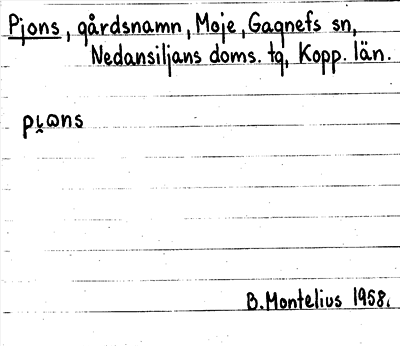 Pjons, gårdsnamn, Moje, Gagnefs sn,
Nedansiljans doms. tg, Kopp. län.
pi̯ωns
B. Montelius 1968.